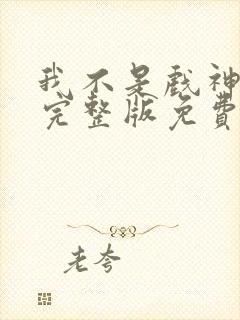 我不是戲神
完整版免費
老夸